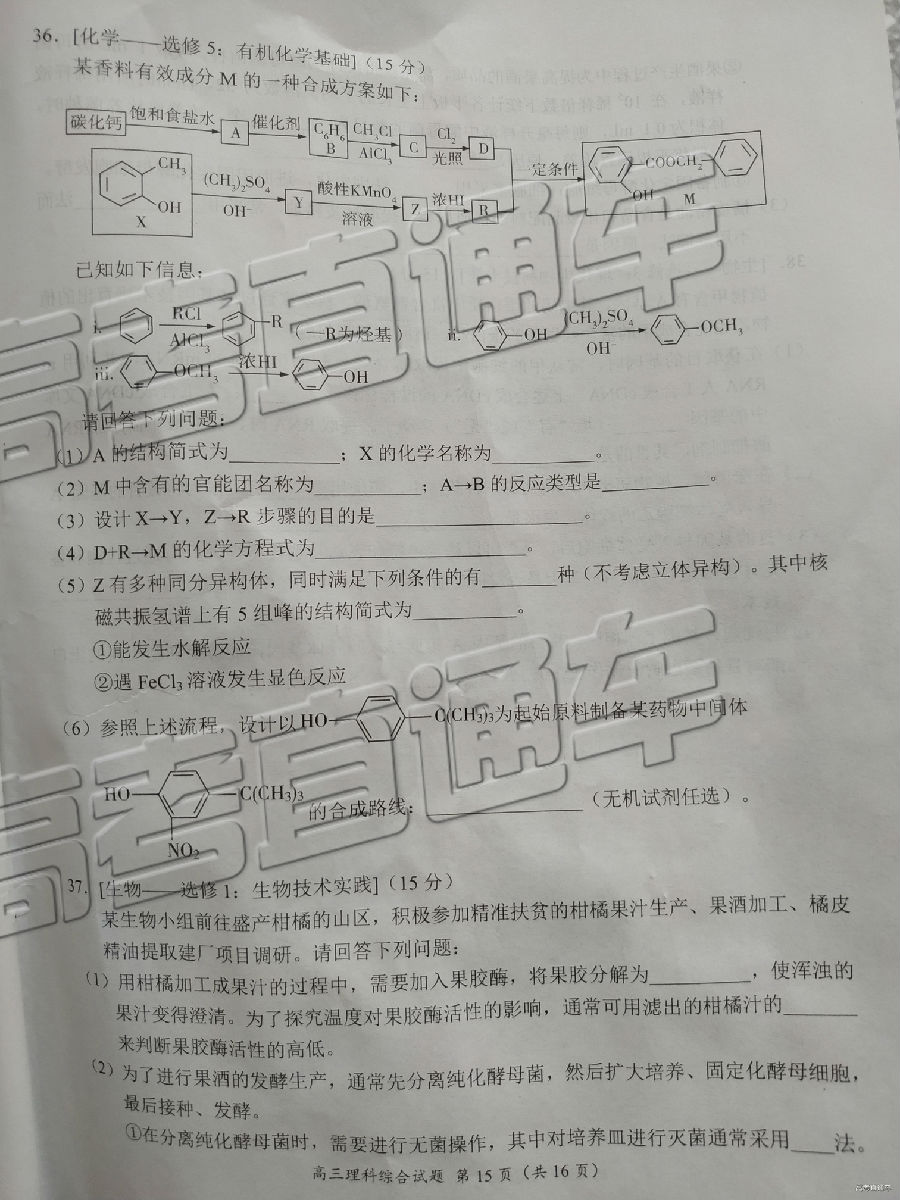 36. [化学——选修5：有机化学基础]（15分）
某香料有效成分M的一种合成方案如下：
碳化钙 饱和食盐水 A 催化剂 C6H6 B CH3Cl AlCl3 C Cl2 光照 D 一定条件 COOCH2 OH M
CH3 OH X (CH3)2SO4 OH⁻ Y 酸性KMnO4 溶液 Z 浓HI R
已知如下信息：
i. RCl AlCl3 R （—R为烃基） ii. OH (CH3)2SO4 OH⁻ OCH3
iii. OCH3 浓HI OH
请回答下列问题：
（1）A的结构简式为__________；X的化学名称为__________。
（2）M中含有的官能团名称为__________；A→B的反应类型是__________。
（3）设计X→Y，Z→R步骤的目的是____________________。
（4）D+R→M的化学方程式为____________________。
（5）Z有多种同分异构体，同时满足下列条件的有_______种（不考虑立体异构）。其中核
磁共振氢谱上有5组峰的结构简式为__________。
①能发生水解反应
②遇FeCl3溶液发生显色反应
（6）参照上述流程，设计以HO C(CH3)3为起始原料制备某药物中间体
HO C(CH3)3 NO2 的合成路线：_______________（无机试剂任选）。
37. [生物——选修1：生物技术实践]（15分）
某生物小组前往盛产柑橘的山区，积极参加精准扶贫的柑橘果汁生产、果酒加工、橘皮
精油提取建厂项目调研。请回答下列问题：
（1）用柑橘加工成果汁的过程中，需要加入果胶酶，将果胶分解为__________，使浑浊的
果汁变得澄清。为了探究温度对果胶酶活性的影响，通常可用滤出的柑橘汁的_______
来判断果胶酶活性的高低。
（2）为了进行果酒的发酵生产，通常先分离纯化酵母菌，然后扩大培养、固定化酵母细胞，
最后接种、发酵。
①在分离纯化酵母菌时，需要进行无菌操作，其中对培养皿进行灭菌通常采用____法。
高三理科综合试题 第15页（共16页）
高考直通车
高考直通车